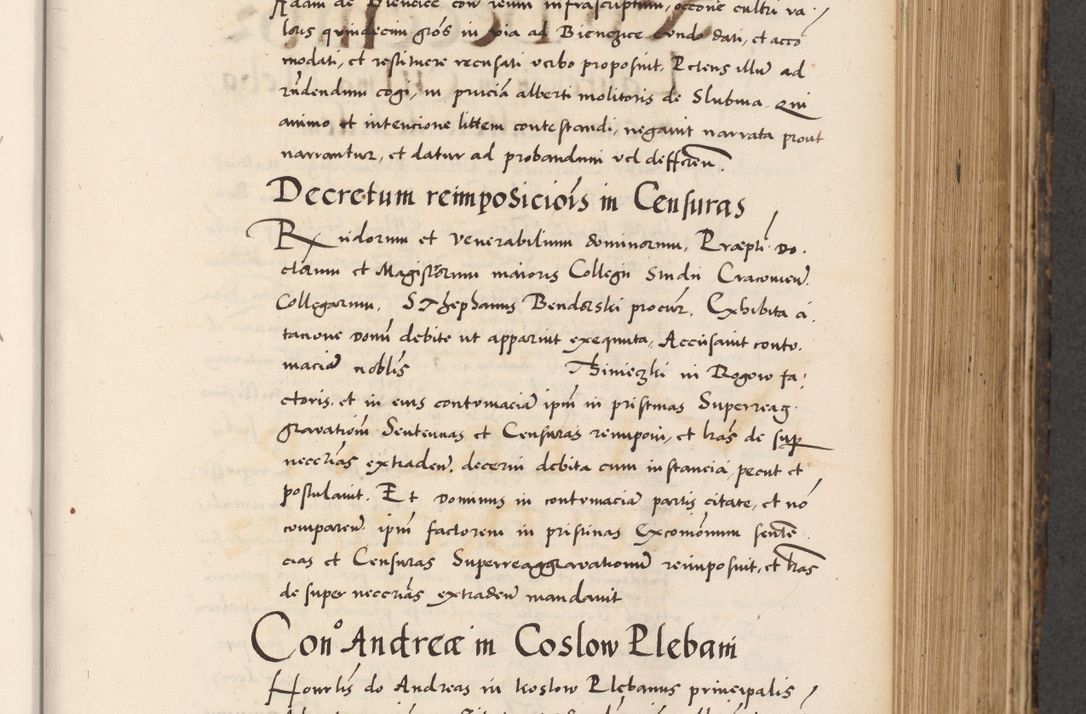 Adam de Biencice con reum infrascriptum, occone cultri va
loris quindecim gros in via ad Bienczice eundo dati, et acco
modati, et restituere recusati verbo proposuit. Petens illu ad
rndendum cogi, in prucia alberti molitoris de Slubina. Qui
animo et intencione littem contestandi, negavit narrata prout
narrantur, et datur ad probandum vel differen.
Decretum reimposiciois in Censuras
Rndorum et venerabilium dominorum, Praepti Do.
ctorum et Magistrorum maioris Collegii Studii Cracovien.
Collegarum. SThephanus Bendorski procur. Exhibita ci
tacione domi debite ut apparuit exequuta, Accusavit contu.
macia noblis Thimeczki in Rogow fa
ctoris et in eius contumacia ipm in pristinas Superreag
gravationm Sentencias et Censuras reimponi, et lras de sup
necerias extraden. decerni debita cum instancia, pecut et
postulavit. Et dominus in contumacia partis citate, et no
comparen ipm factorem in pristinas Excomonum sente
cias et Censuras Superreaggravationum reimposuit, et lras
de super necerias extraden mandavit
Cono Andreæ in Coslow Plebani
Honrlis do Andreas in Koslow Plebanus principalis